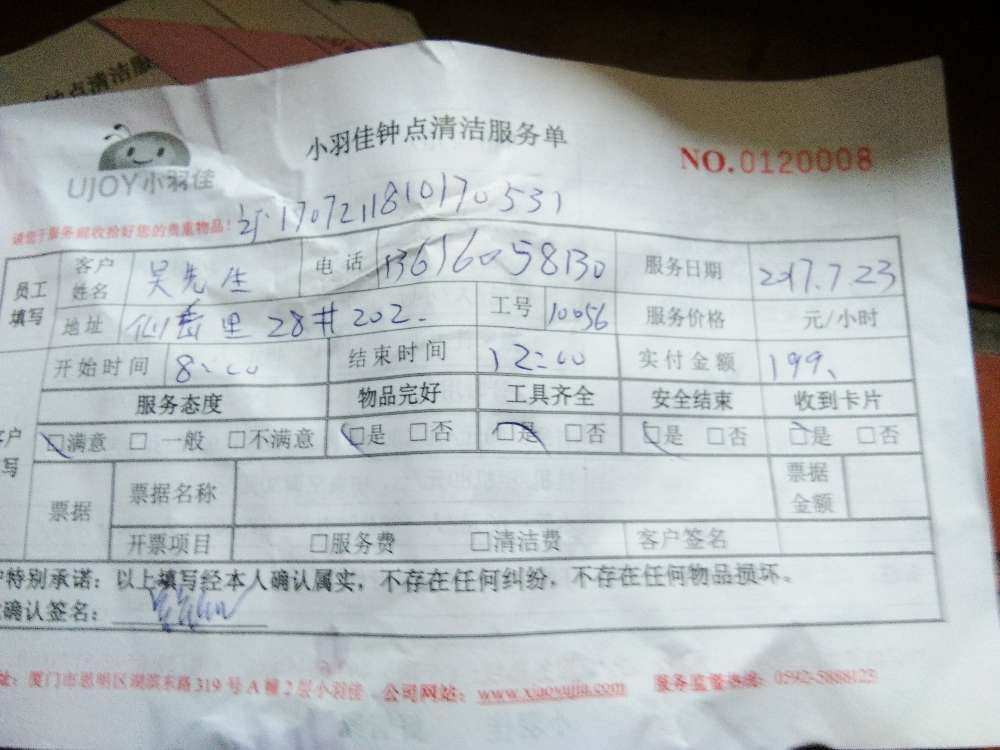 钟点清洁服
小羽佳钟点清洁服务单
NO.0120008
UJOY小羽佳
请您于服务前收拾好您的贵重物品!
1707211810170531
员工填写 客户姓名 吴先生 电话 13616058130 服务日期 2017.7.23
地址 仙岳里28#202. 工号 10056 服务价格 元/小时
开始时间 8:00 结束时间 12:00 实付金额 199、
服务态度 物品完好 工具齐全 安全结束 收到卡片
□满意 □一般 □不满意 □是 □否 □是 □否 □是 □否 □是 □否
票据 票据名称 票据金额
开票项目 □服务费 □清洁费 客户签名
特别承诺:以上填写经本人确认属实,不存在任何纠纷,不存在任何物品损坏。
确认签名:
址:厦门市思明区湖滨东路319号A幢2层小羽佳 公司网站:www.xiaoyujia.com 服务监督热线:0592-5888123